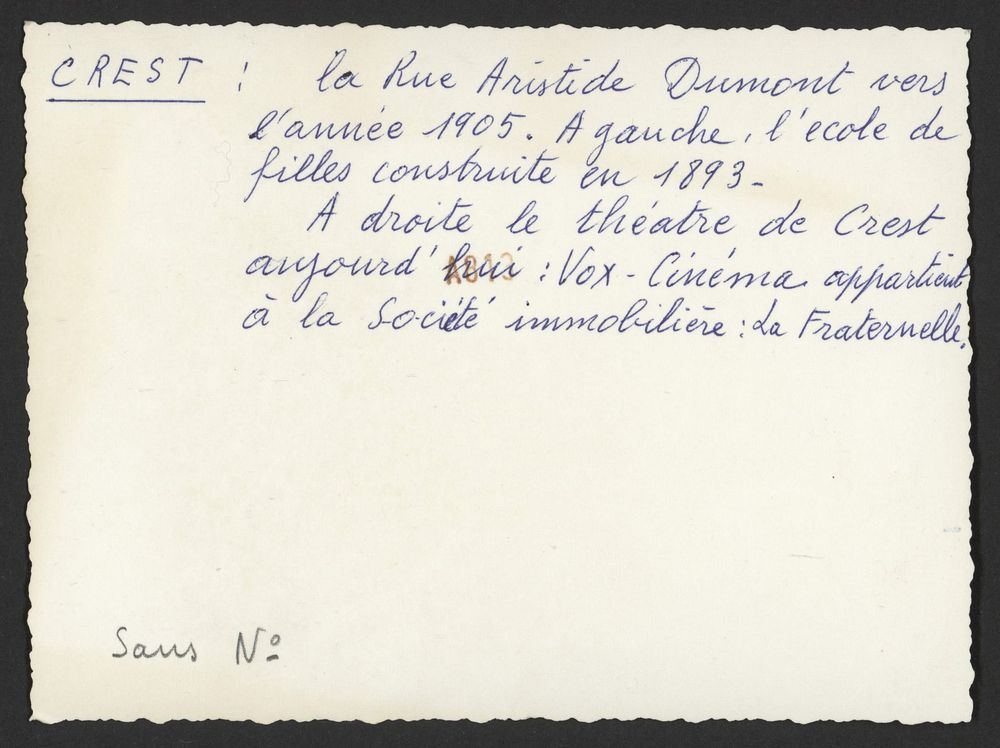 CREST : la Rue Aristide Dumont vers
l'année 1905. A gauche, l'école de
filles construite en 1893 -
A droite le théatre de Crest
aujourd'hui : Vox - Cinéma appartient
à la Société immobilière : La Fraternelle.
Sans Nº